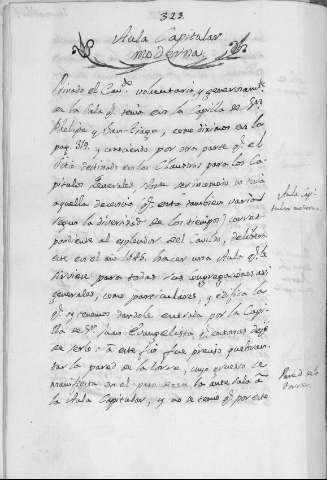 323.
Aula Capitular
moderna.
Privado el Cav.do voluntaria y generosam.te
de la Sala q.e tenia en la Capilla de Sn.
Phelipe y San-Tiago, como diximos en la
pag. 313. y conociendo por otra parte q.e el
sitio destinado en los Claustros para los Ca-
pitulos Generales
aquella decencia q.e esta tambien varia
segun la diversidad de los tiempos, corres-
pondiente al esplendor del Cavildo, delibero
este en el año 1646. hacer una Aula q.e le
sirviese para todas las congregaciones asi
generales, como particulares, y edifica la
q.e tenemos dandole entrada por la Capi-
lla de Sn. Juan Evangelista q.e entonces dexo
de serlo: â este fin fue preciso quebran-
tar la pared de la Torre, cuyo grueso se
manifiesta en el paso desde la ante sala â
la Aula Capitular, y no se temio q.e por este
Aula Capi-
tular moderna.
Pared de la
Torre.